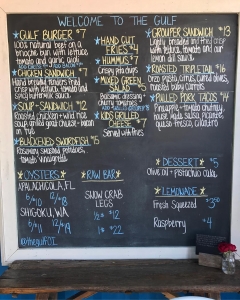 WELCOME TO THE GULF
GULF BURGER $7
100% natural beef on a
brioche bun with lettuce
tomato and garlic aioli
CHICKEN SANDWICH $7
Hand breaded tenders fried
crisp with lettuce tomato and
spicy buttermilk sauce
SOUP - SANDWICH $12
Roasted chicken - wild rice
soup and
on rye
BLACKENED SWORDFISH $15
Rosemary smashed potatoes,
tomato vinaigrette
HAND CUT
FRIES $4
HUMMUS $7
Crispy pita chips
MIXED GREENS
Balsamic dressing -
cherry tomatoes
KIDS GRILLED
CHEESE $7
Served with fries
GROUPER SANDWICH $13
Lightly breaded and fried crisp
with lettuce, tomato and our
lemon aioli sauce
ROASTED TRIPLETAIL $16
citrus, carrots, olives,
roasted baby carrots
PULLED PORK TACOS $14
Pineapple tomato chutney,
house made salsa, picante,
queso fresco, cilantro
OYSTERS
APALACHICOLA, FL
6/$10 12/$18
SHIGOKU, WA
6/$11 12/$19
@thegulfCI
RAW BAR
SNOW CRAB
LEGS
½ # $12
1 # $22
DESSERT $5
Olive oil + pistachio cake
LEMONADE
Fresh Squeezed $3.50
Raspberry $4